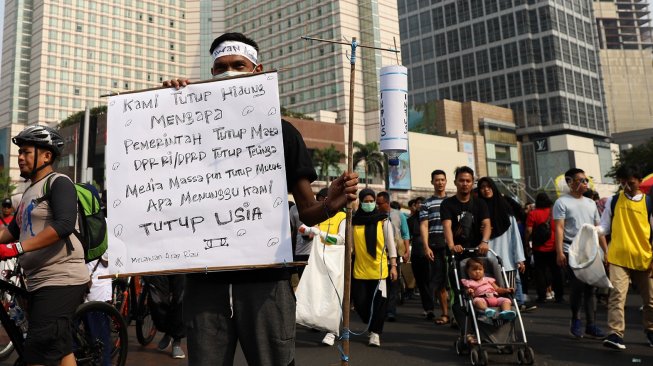 Kami Tutup Hidung
Mengapa
Pemerintah Tutup Mata
DPR RI/DPRD Tutup Telinga
Media Massa pun Tutup Mulut
Apa Menunggu Kami
TUTUP USIA
Melawan Asap Riau
INPUS